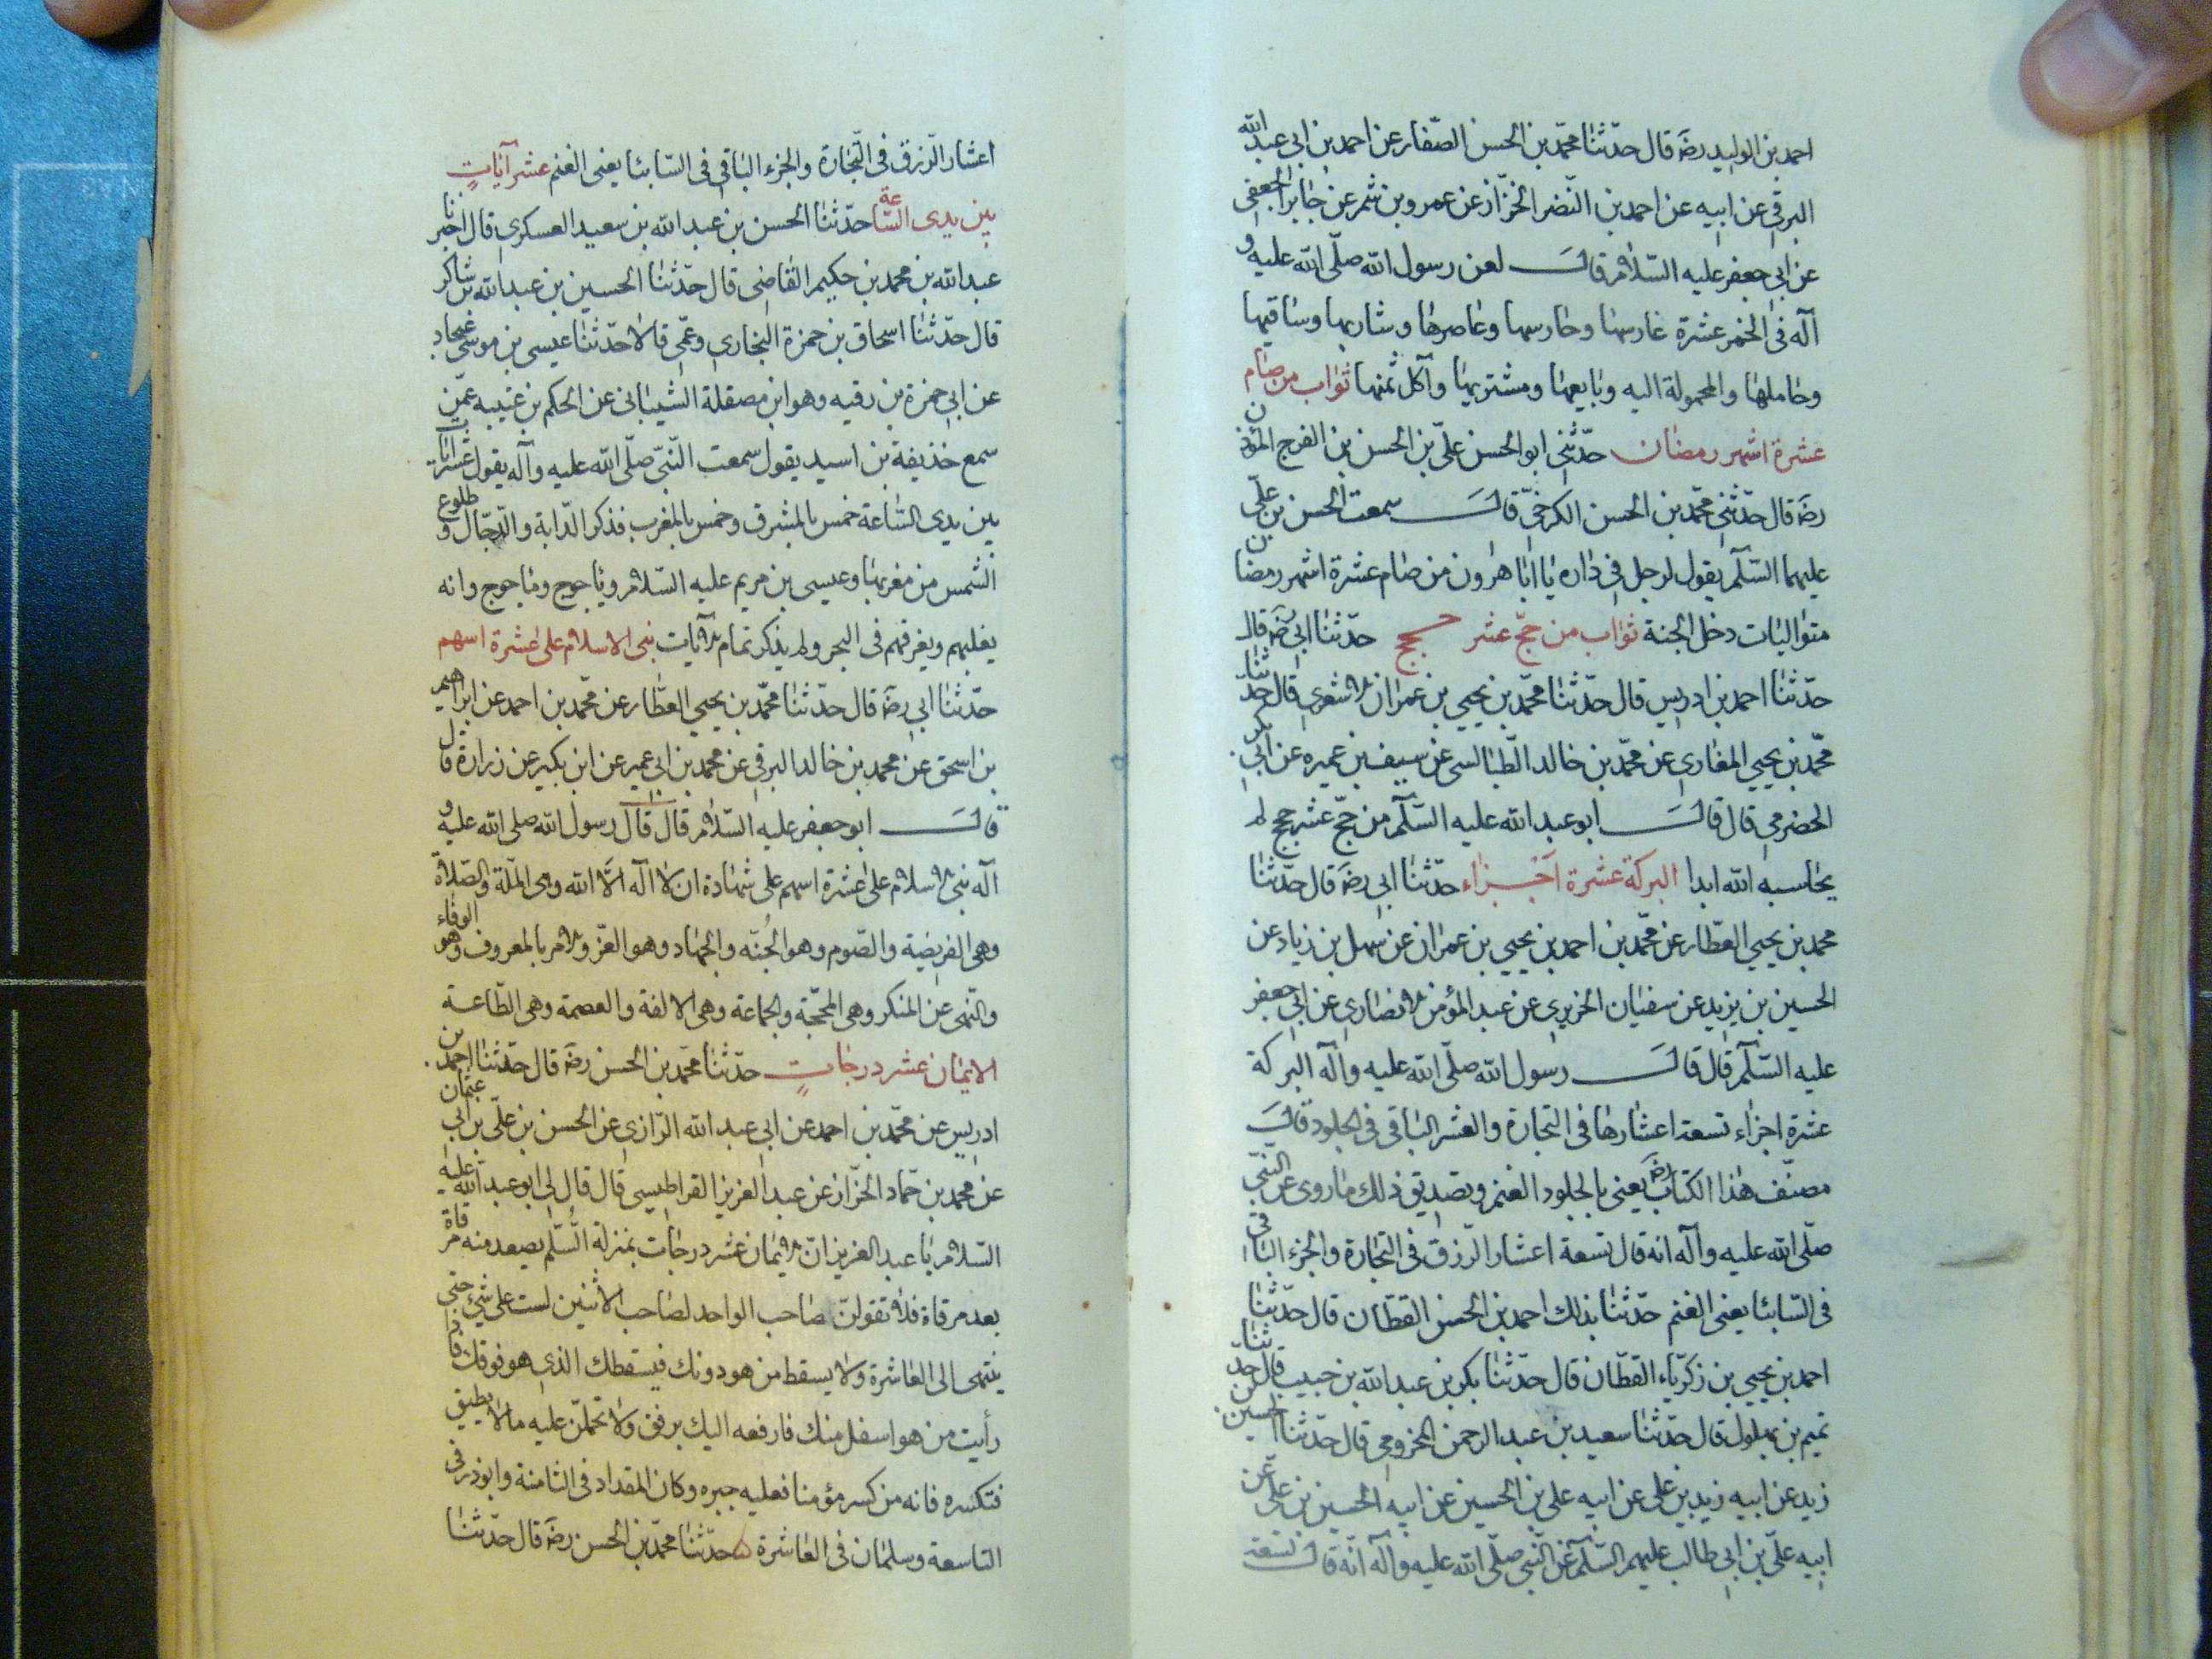 احمد بن الوليد رضه قال حدّثنا محمّد بن الحسن الصّفار عن احمد بن ابى عبد الله
البرقى عن ابيه عن احمد بن النّضر الخزّاز عن عمرو بن شمر عن جابر الجعفى
عن ابى جعفر عليه السّلام قال لعن رسول الله صلّى الله عليه و
آله فى الخمر عشرة غارسها وحارسها وعاصرها وشاربها وساقيها
وحاملها والمحمولة اليه وبايعها ومشتريها وآكل ثمنها ثواب من صام
عشرة اشهر رمضان حدّثنى ابو الحسن علىّ بن الحسن بن الفرج المؤذن
رضه قال حدّثنى محمّد بن الحسن الكرخىّ قال سمعت الحسن بن علىّ
عليهما السّلم يقول لرجل فى داره يا ابا هرون من صام عشرة اشهر رمضان
متواليات دخل الجنة ثواب من حجّ عشر حجج حدّثنا ابى رضه قال
حدّثنا احمد بن ادريس قال حدّثنا محمّد بن يحيى بن عمران الاشعرى قال حدّثنا
محمّد بن يحيى المعاذى عن محمّد بن خالد الطّيالسى عن سيف بن عميره عن ابى بكر
الحضرمى قال قال ابو عبد الله عليه السّلم من حجّ عشر حجج لم
يحاسبه الله ابدا البركة عشرة اجزاء حدّثنا ابى رضه قال حدّثنا
محمد بن يحيى العطّار عن محمّد بن احمد بن يحيى بن عمران عن سهل بن زياد عن
الحسين بن يزيد عن سفيان الحريرى عن عبد المؤمن الانصارى عن ابى جعفر
عليه السّلم قال قال رسول الله صلّى الله عليه وآله البركة
عشرة اجزاء تسعة اعشارها فى التجارة والعشر الباقى فى الجلود قال
مصنّف هذا الكتاب رضه يعنى بالجلود الغنم وتصديق ذلك ما روى عن النّبىّ
صلّى الله عليه وآله انه قال تسعة اعشار الرّزق فى التجارة والجزء الباقى
فى السّابئا يعنى الغنم حدّثنا بذلك احمد بن الحسن القطّان قال حدّثنا
احمد بن يحيى بن زكريّاء القطّان قال حدّثنا بكر بن عبد الله بن حبيب قال حدّثنا
تميم بن بهلول قال حدّثنا سعيد بن عبد الرحمن المخزومى قال حدّثنا الحسين بن
زيد عن ابيه زيد بن على عن ابيه على بن الحسين عن ابيه الحسين بن علىّ عن
ابيه علىّ بن ابى طالب عليهم السّلم عن النّبى صلّى الله عليه وآله انّه قال تسعة
اعشار الرّزق فى التّجارة والجزء الباقى فى السّابئا يعنى الغنم عشر آياتٍ
بين يدى السّاعة حدّثنا الحسن بن عبد الله بن سعيد العسكرى قال اخبرنا
عبد الله بن محمد بن حكيم القاضى قال حدّثنا الحسين بن عبد الله بن شاكر
قال حدّثنا اسحاق بن حمزة البخارى وعمّى قالا حدّثنا عيسى بن موسى غنجار
عن ابى حمزة بن رقيه وهو ابن مصقلة الشيبانى عن الحكم بن عتيبه عمّن
سمع حذيفة بن اسيد يقول سمعت النّبىّ صلّى الله عليه وآله يقول عشر آيات
بين يدى السّاعة خمس بالمشرق وخمس بالمغرب فذكر الدّابة والدّجّال وطلوع
الشمس من مغربها وعيسى بن مريم عليه السّلام وياجوج وماجوج وانه
يغلبهم ويغرقهم فى البحر ولم يذكر تمام الآيات بنى الاسلام على عشرة اسهم
حدّثنا ابى رضه قال حدّثنا محمّد بن يحيى العطّار عن محمّد بن احمد عن ابراهيم
بن اسحق عن محمد بن خالد البرقى عن محمد بن ابى عمير عن ابن بكير عن زرارة قال
قال ابو جعفر عليه السّلام قال قال رسول الله صلى الله عليه و
آله بنى الاسلام على عشرة اسهم على شهادة ان لا اله الّا الله وهى الملّة والصّلاة
وهى الفريضة والصّوم وهو الجُنّه والجهاد وهو العزّ والامر بالمعروف وهو الوفاء
والنّهى عن المنكر وهى المحجّة والجماعة وهى الالفة والعصمة وهى الطّاعة
الايمان عشر درجاتٍ حدّثنا محمّد بن الحسن رضه قال حدّثنا احمد بن
ادريس عن محمّد بن احمد عن ابى عبد الله الرّازى عن الحسن بن علىّ بن ابى عثمان
عن محمد بن حمّاد الخزّاز عن عبد العزيز القراطيسى قال قال لى ابو عبد الله عليه
السّلام يا عبد العزيز انّ الايمان عشر درجات بمنزلة السُّلّم يصعد منه مرقاة
بعد مرقاة فلا تقولنّ صاحب الواحد لصاحب الاثنين لست على شئ حتى
ينتهى الى العاشرة ولا يسقط من هو دونك فيسقطك الذى هو فوقك فاذا
رأيت من هو اسفل منك فارفعه اليك برفق ولا تحملنّ عليه ما لا يطيق
فتكسره فانه من كسر مؤمنا فعليه جبره وكان المقداد فى الثامنة وابو ذر فى
التاسعة وسلمان فى العاشرة حدّثنا محمّد بن الحسن رضه قال حدّثنا